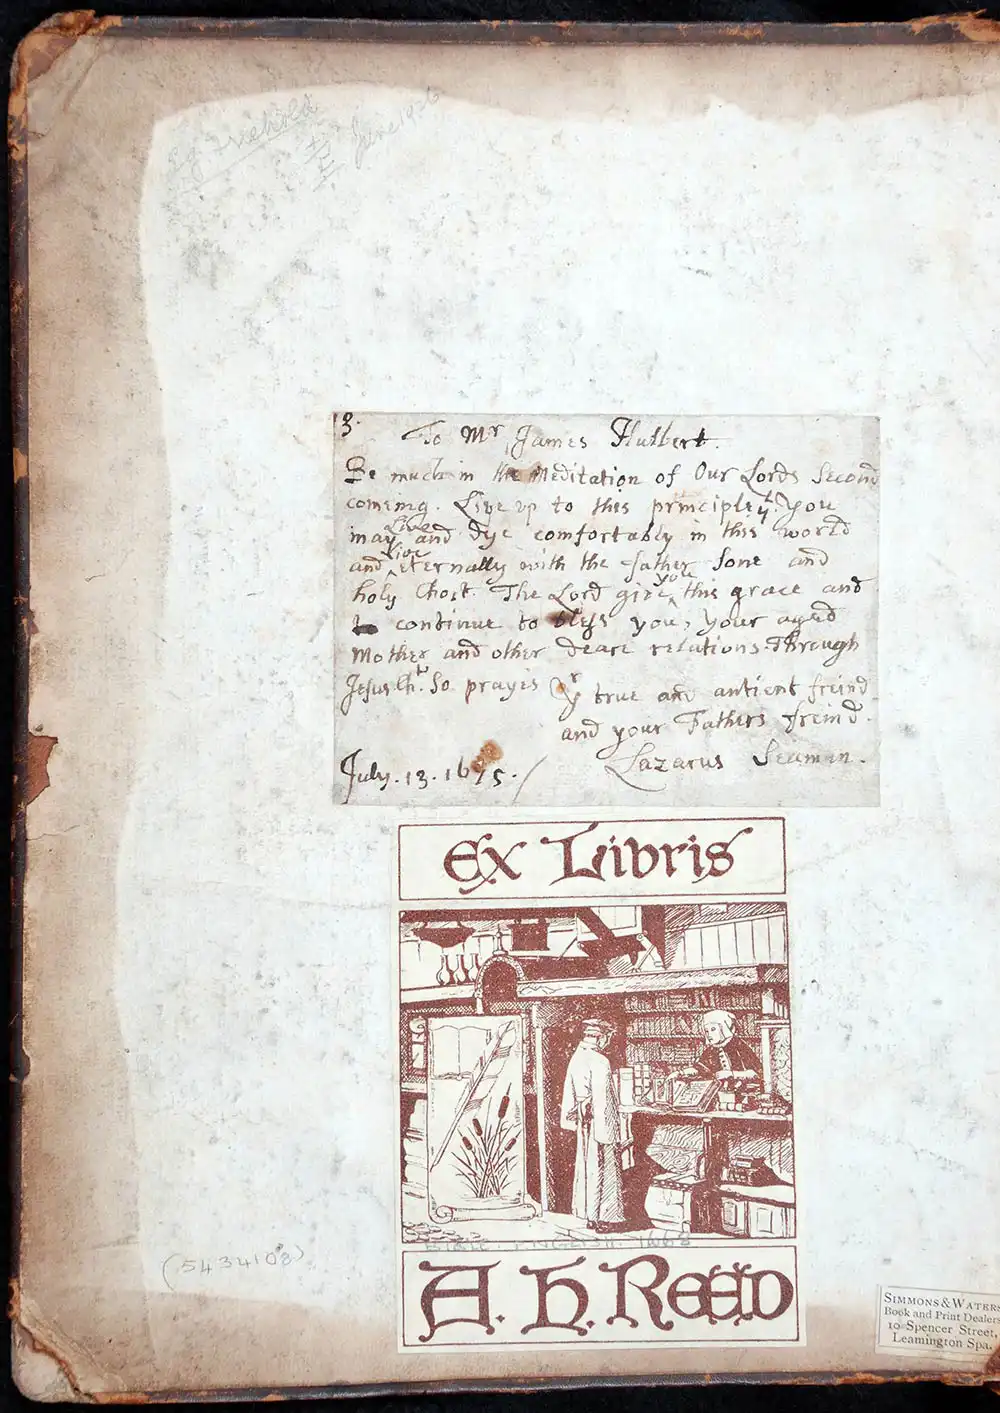 June 1926
13.
To Mr James Hulbert.
Be much in the Meditation of Our Lords Second
coming. Live up to this principle, yt you
may Live and dye comfortably in this world
and Live eternally with the father Sone and
holy Ghost. The Lord give you this grace and
continue to bless you, your aged
Mother and other deare relations Through
Jesus Cht. So prayes Yr true and antient freind
and your Fathers freind.
July. 13. 1675. / Lazarus Seaman.
Ex Libris
BIBLE. ENGLISH. 1668
A. H. Reed
(5434108)
SIMMONS & WATERS
Book and Print Dealers
10 Spencer Street,
Leamington Spa.